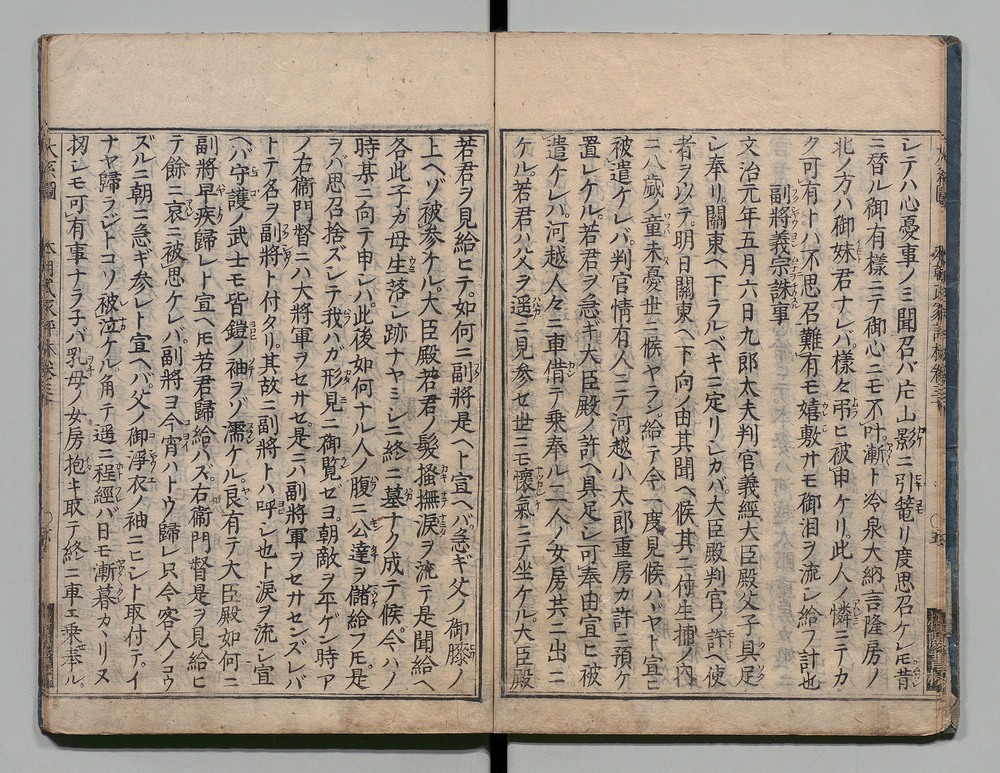 シテハ心憂事ノミ聞召バ片山影ニ引篭リ度思召ケレモ昔
ニ替ル御有様ニテ御心ニモ不叶漸ト冷泉大納言隆房ノ
北ノ方ハ御妹君ナレバ様々弔ヒ被申ケリ。此人ノ憐ニテカ
ク可有トハ不思召難有モ嬉敷サモ御泪ヲ流シ給フ計也
副將義宗誅事
文治元年五月六日九郎太夫判官義經大臣殿父子具足
シ奉リ。關東ヘ下ラルベキニ定リシカバ。大臣殿判官ノ許ヘ使
者ヲ以テ。明日關東ヘ下向ノ由其聞ヘ候。其ニ付生捕ノ内
ニ八歳ノ童未憂世ニ候ヤラン。給テ今一度見候ハヾヤト宣ヒ
被遣ケレバ。判官情有人ニテ河越小太郎重房カ許ニ預ケ
置レケル。若君ヲ急ギ大臣殿ノ許ヘ具足シ可奉由宣ヒ被
遣ケレバ。河越人々ニ車借テ乗奉ル二人ノ女房共ニ出ニ
ケル。若君ハ父ヲ遥ニ見參セ世ニモ懷氣ニテ坐ケル。大臣殿
若君ヲ見給ヒテ。如何ニ副將是ヘト宣ヘバ急ギ父ノ御膝ノ
上ヘゾ被參ケル。大臣殿若君ノ髪掻撫涙ヲ流テ是聞給ヘ
各此子ガ母生落シ跡ナヤミシニ終ニ墓ナク成テ候。今ハノ
時其ニ向テ申シハ。此後如何ナル人ノ腹ニ公達ヲ儲給フモ。是
ヲバ思召捨ズシテ我ハガ形見ニ御覧セヨ。朝敵ヲ平ゲン時ア
ノ右衛門督ニハ大將軍ヲセサセ。是ニハ副將軍ヲセサセンズレバ
トテ名ヲ副將ト付タリ。其故ニ副將トハ呼シ也ト涙ヲ流シ宣
ヘバ守護ノ武士モ皆鎧ノ袖ヲゾ濡ケル。良有テ大臣殿如何ニ
副將早疾歸レト宣ヘモ若君歸給ハズ。右衛門督是ヲ見給ヒ
テ餘ニ哀ニ被思ケレバ。副將ヨ今宵ハトウ歸レ只今客人ノコウ
ズルニ朝ニ急ギ參レト宣ヘバ。父ノ御淨衣ノ袖ニヒシト取付テ。イ
ナヤ歸ラジトコソ被泣ケル。角テ遥ニ程經バ日モ漸暮カヽリヌ
扨シモ可有事ナラ子バ乳母ノ女房抱キ取テ終ニ車エ乗奉ル。